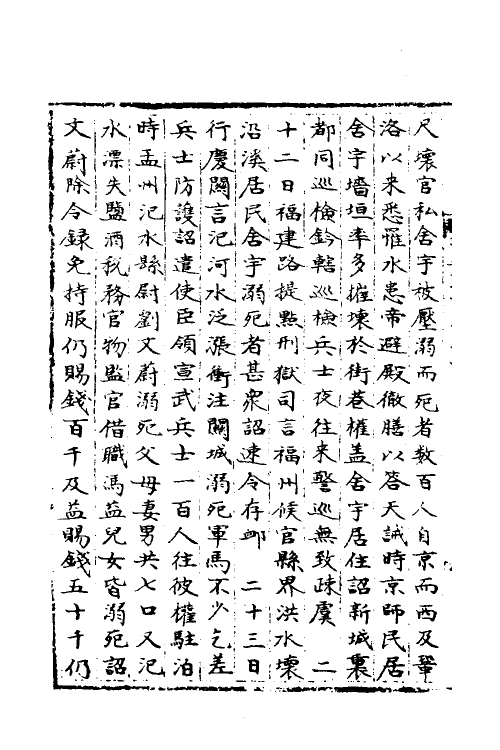 尺壞官私舍宇被壓溺而死者數百人自京而西及鞏
洛以来悉罹水患帝避殿徹膳以答天誡時京師民居
舍宇墻垣率多摧壞於街巷權盖舍宇居住詔新城裏
都同巡檢鈐轄巡檢兵士夜往来警巡無致疎虞　二
十二日福建路提點刑獄司言福州候官縣界洪水壞
沿溪居民舍宇溺死者甚衆詔速令存卹　二十三日
行慶關言汜河水泛漲衝注關城溺死軍馬不少乞差
兵士防護詔遣使臣領宣武兵士一百人往彼權駐泊
時孟州汜水縣尉劉文蔚溺死父母妻男共七口又汜
水漂失鹽酒稅務官物監官借職馮益兒女皆溺死詔
文蔚除令録免持服仍賜錢百千及益賜錢五十千仍